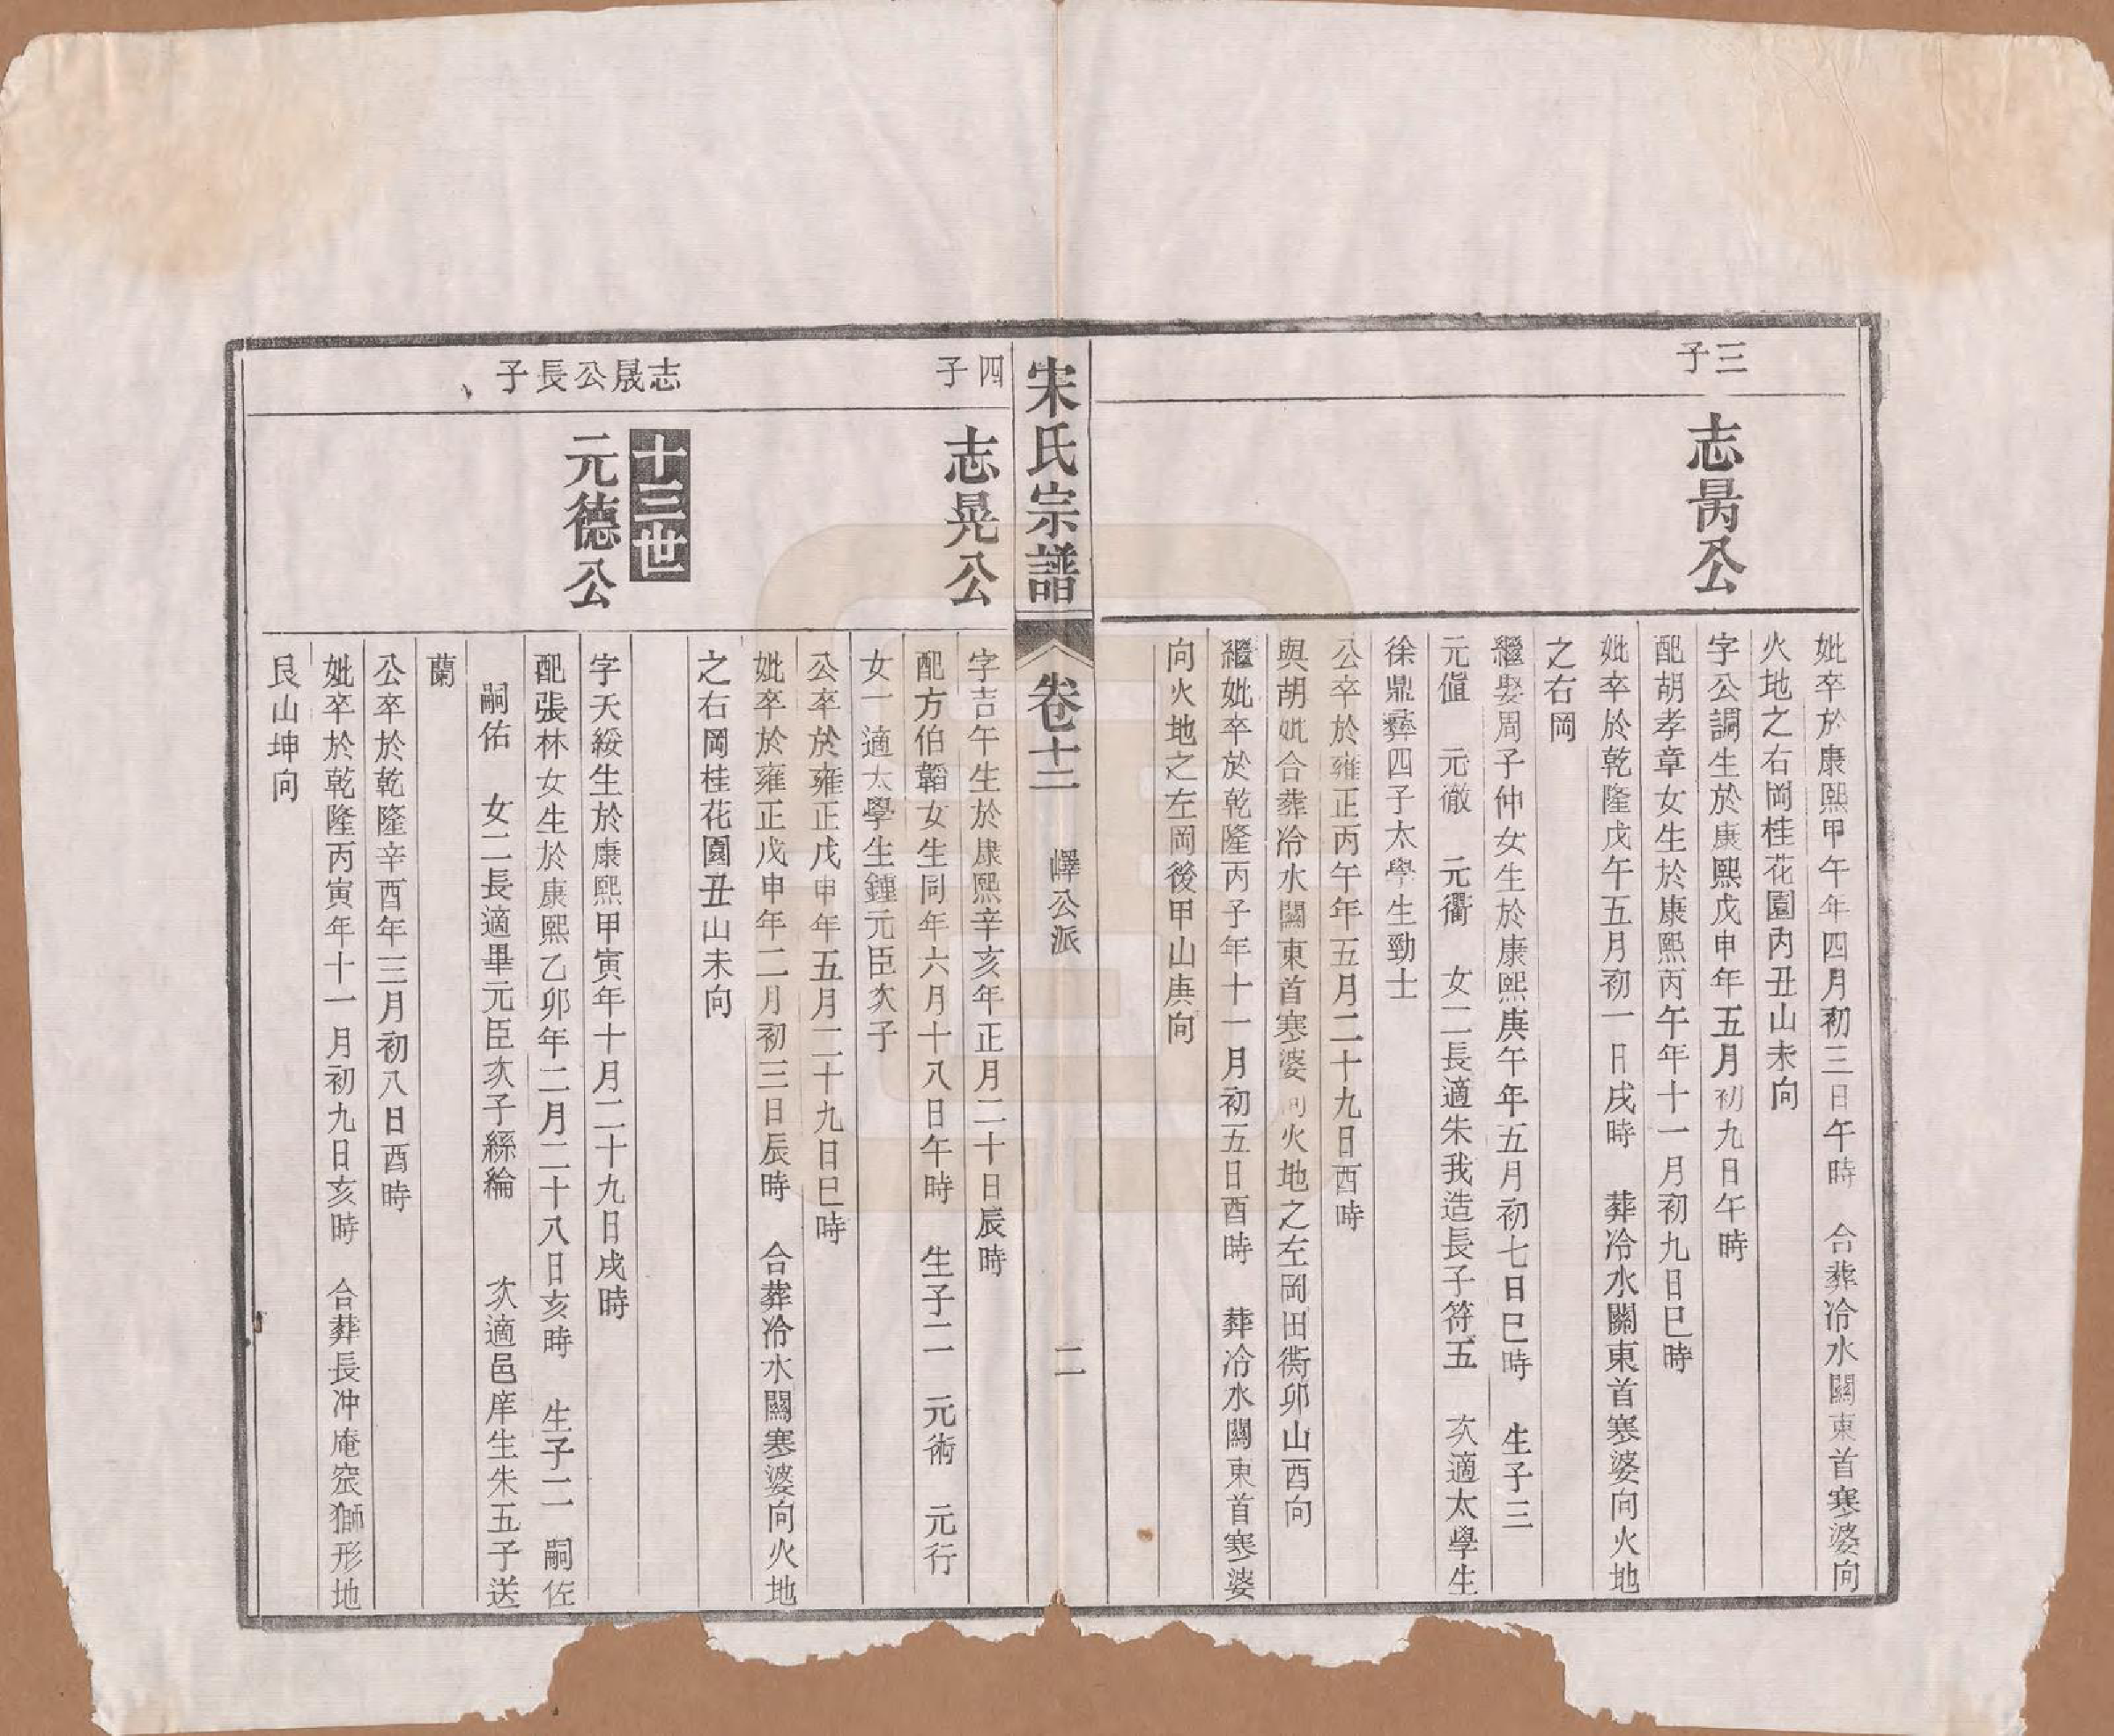 三子
志昺公
妣卒於康熙甲午年四月初三日午時 合葬冷水關東首寒婆向
火地之右岡桂花園內丑山未向
字公調生於康熙戊申年五月初九日午時
配胡孝章女生於康熙丙午年十一月初九日巳時
妣卒於乾隆戊午五月初一日戌時 葬冷水關東首寒婆向火地
之右岡
繼娶周子仲女生於康熙庚午年五月初七日巳時 生子三
元值 元徹 元衢 女二長適朱我造長子符五 次適太學生
徐鼎彝四子太學生勁士
公卒於雍正丙午年五月二十九日酉時
與胡妣合葬冷水關東首寒婆向火地之左岡田衖卯山酉向
繼妣卒於乾隆丙子年十一月初五日酉時 葬冷水關東首寒婆
向火地之左岡後甲山庚向
宋氏宗譜 卷十二 嶧公派 二
四子
志晃公
字吉午生於康熙辛亥年正月二十日辰時
配方伯韜女生同年六月十八日午時 生子二 元術 元行
女一適太學生鍾元臣次子
公卒於雍正戊申年五月二十九日巳時
妣卒於雍正戊申年二月初三日辰時 合葬冷水關寒婆向火地
之右岡桂花園丑山未向
十三世
志晟公長子
元德公
字天綏生於康熙甲寅年十月二十九日戌時
配張林女生於康熙乙卯年二月二十八日亥時 生子二 嗣佐
嗣佑 女二長適畢元臣次子絲綸 次適邑庠生朱五子送
蘭
公卒於乾隆辛酉年三月初八日酉時
妣卒於乾隆丙寅年十一月初九日亥時 合葬長冲庵窊獅形地
艮山坤向